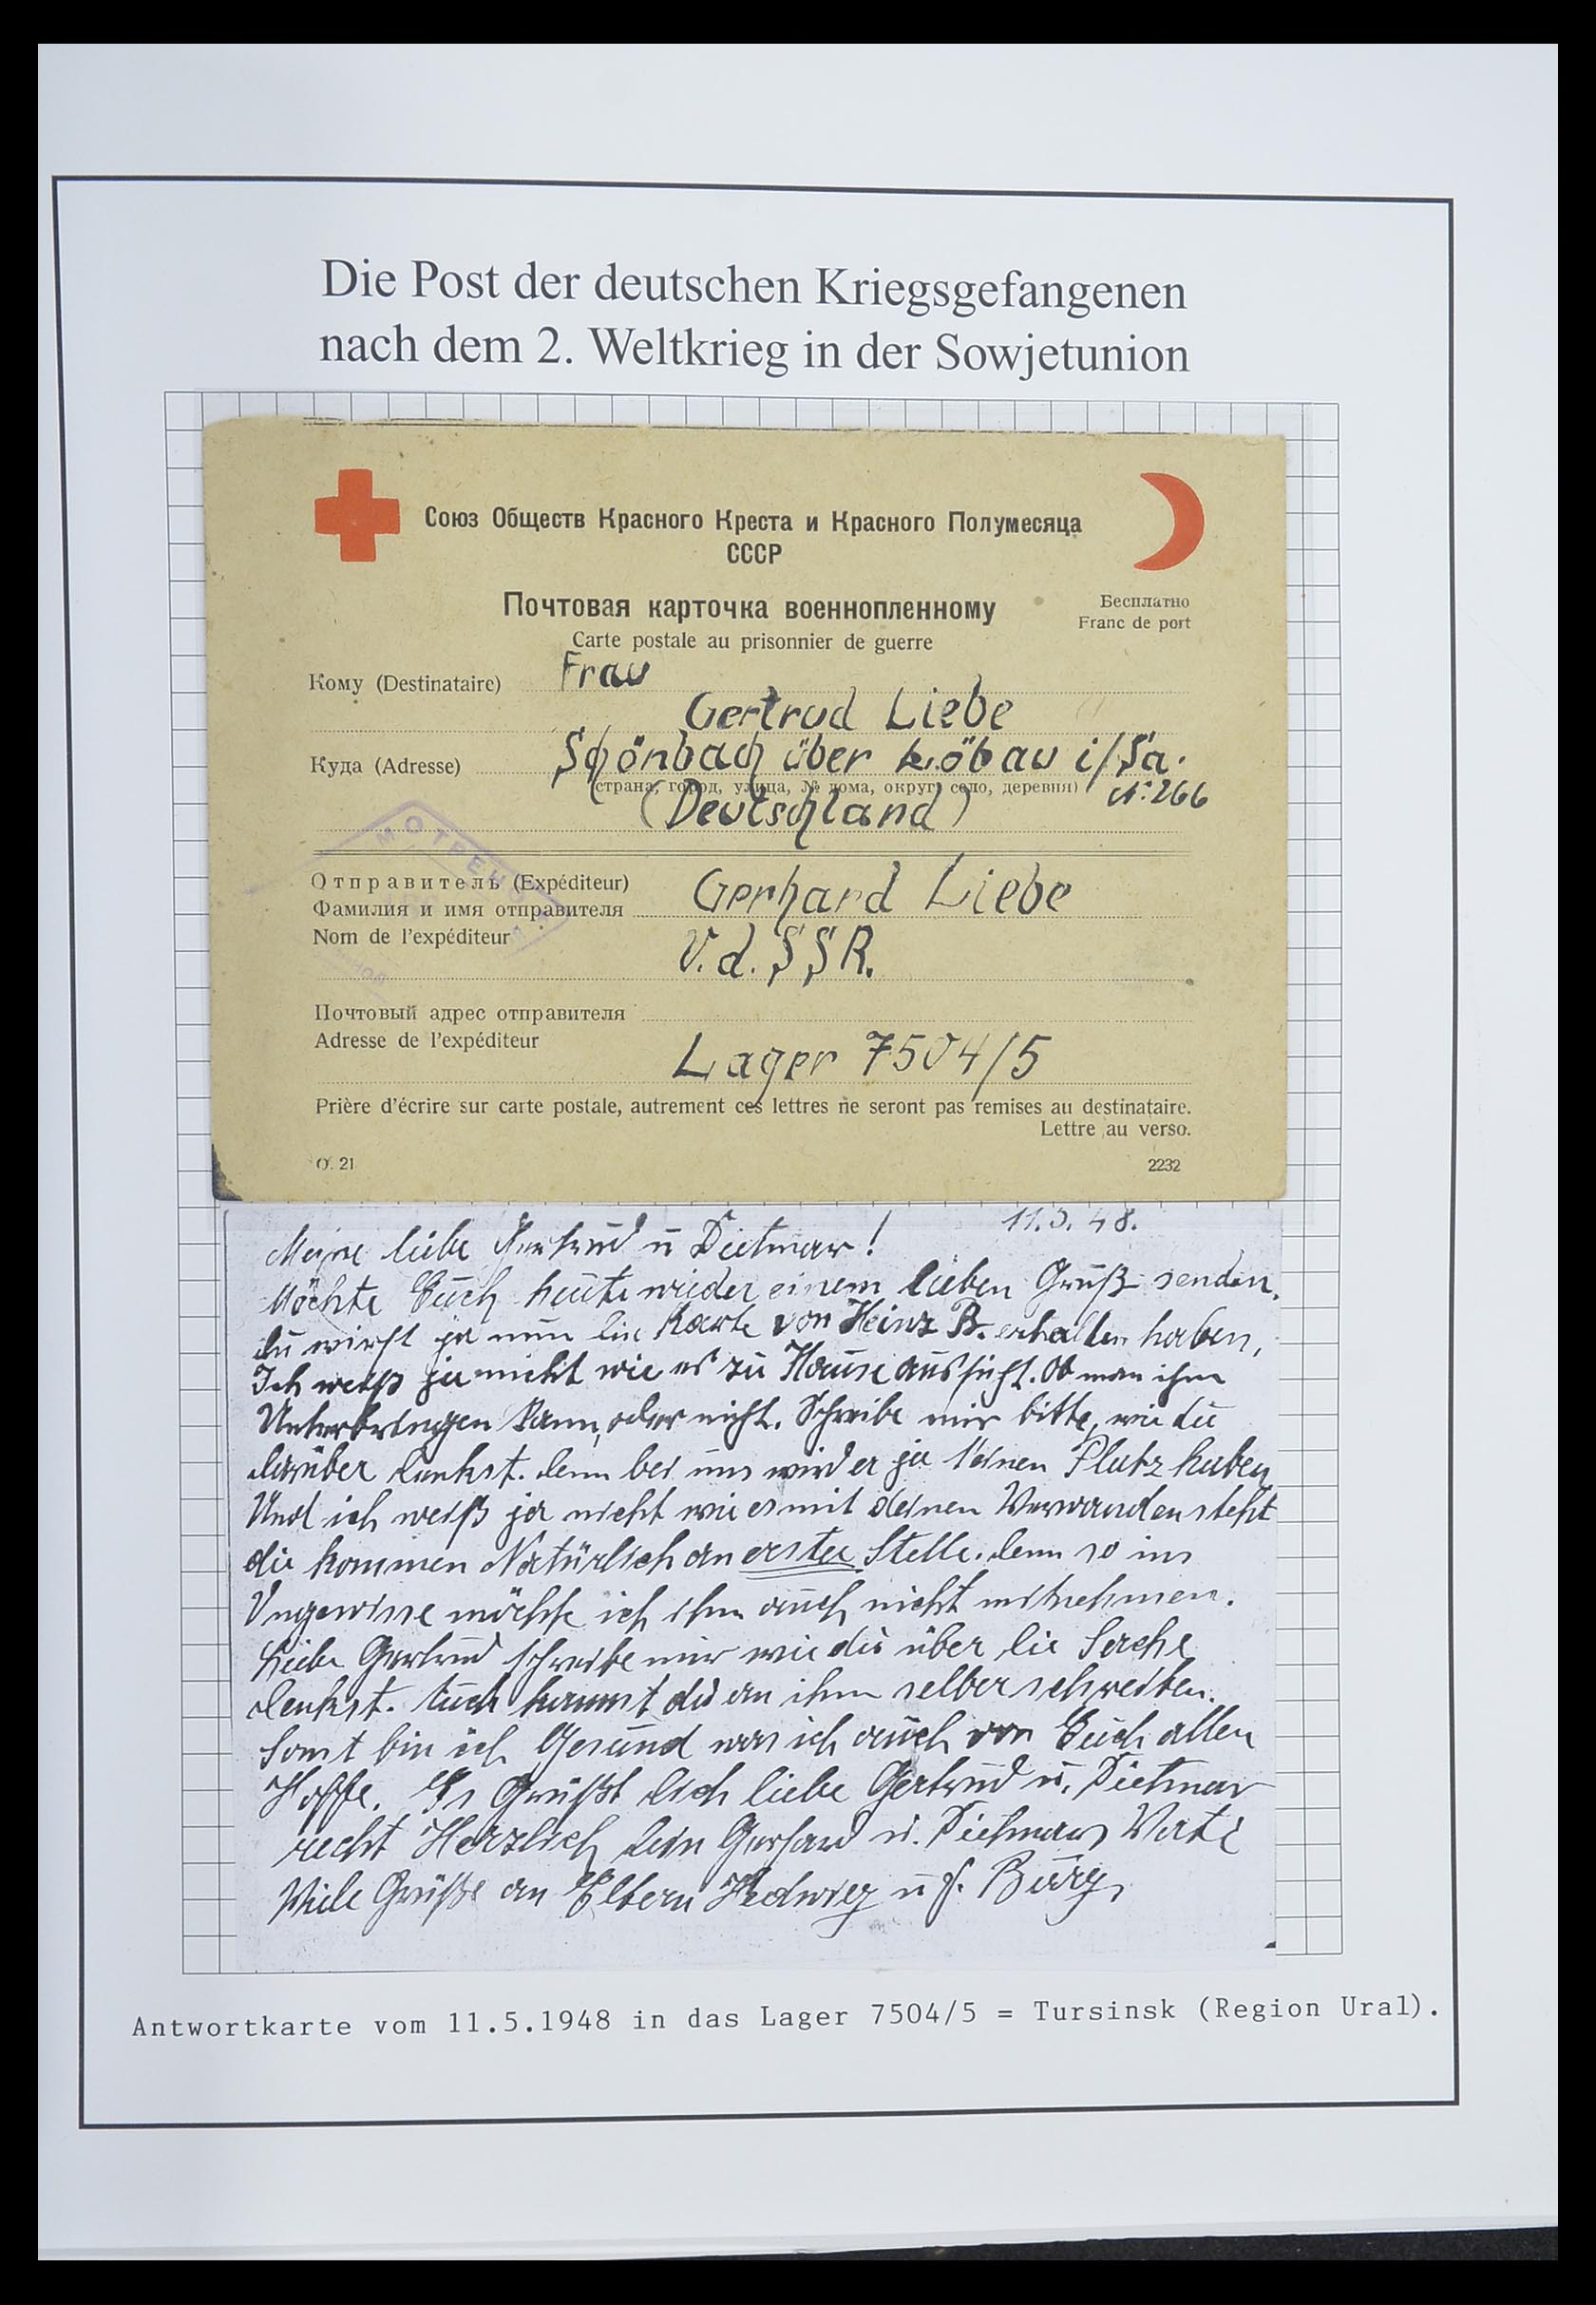 Die Post der deutschen Kriegsgefangenen
nach dem 2. Weltkrieg in der Sowjetunion
Союз Обществ Красного Креста и Красного Полумесяца
СССР
Почтовая карточка военнопленному
Бесплатно
Carte postale au prisonnier de guerre
Franc de port
Кому (Destinataire) Frau
Gertrud Liebe
Куда (Adresse) Schönbach über Löbau i/Sa.
(страна, город, улица, № дома, округ, село, деревня) N:266
(Deutschland)
Отправитель (Expéditeur)
Фамилия и имя отправителя Gerhard Liebe
Nom de l'expéditeur
U.d.SSR.
Почтовый адрес отправителя
Adresse de l'expéditeur
Lager 7504/5
Prière d'écrire sur carte postale, autrement ces lettres ne seront pas remises au destinataire.
Lettre au verso.
О. 21 2232
11.5.48.
Meine liebe Gertrud u Dietmar!
Möchte Euch heute wieder einem lieben Gruß senden.
Du wirst ja nun die Karte von Heinz B. erhalten haben,
Ich weiß ja nicht wie es zu Hause aussieht. Ob man ihm
Unterbringen kann, oder nicht. Schreibe mir bitte, wie du
darüber denkst. denn bei uns wird er ja keinen Platz haben
Und ich weiß ja nicht wie es mit deinen Verwanden steht
die kommen Natürlich an erster Stelle. denn so ins
Ungewisse möchte ich ihm auch nicht mitnehmen.
Liebe Gertrud schreibe mir wie du über die Sache
denkst. Auch kannst du an ihm selber schreiben.
Sonst bin ich Gesund was ich auch von Euch allen
Hoffe. Es Grüßt dich liebe Gertrud u. Dietmar
recht Herzlich dein Gerhard u. Dietmars Vati
Viele Grüße an Eltern Hedwig u f. Burg.
Antwortkarte vom 11.5.1948 in das Lager 7504/5 = Tursinsk (Region Ural).